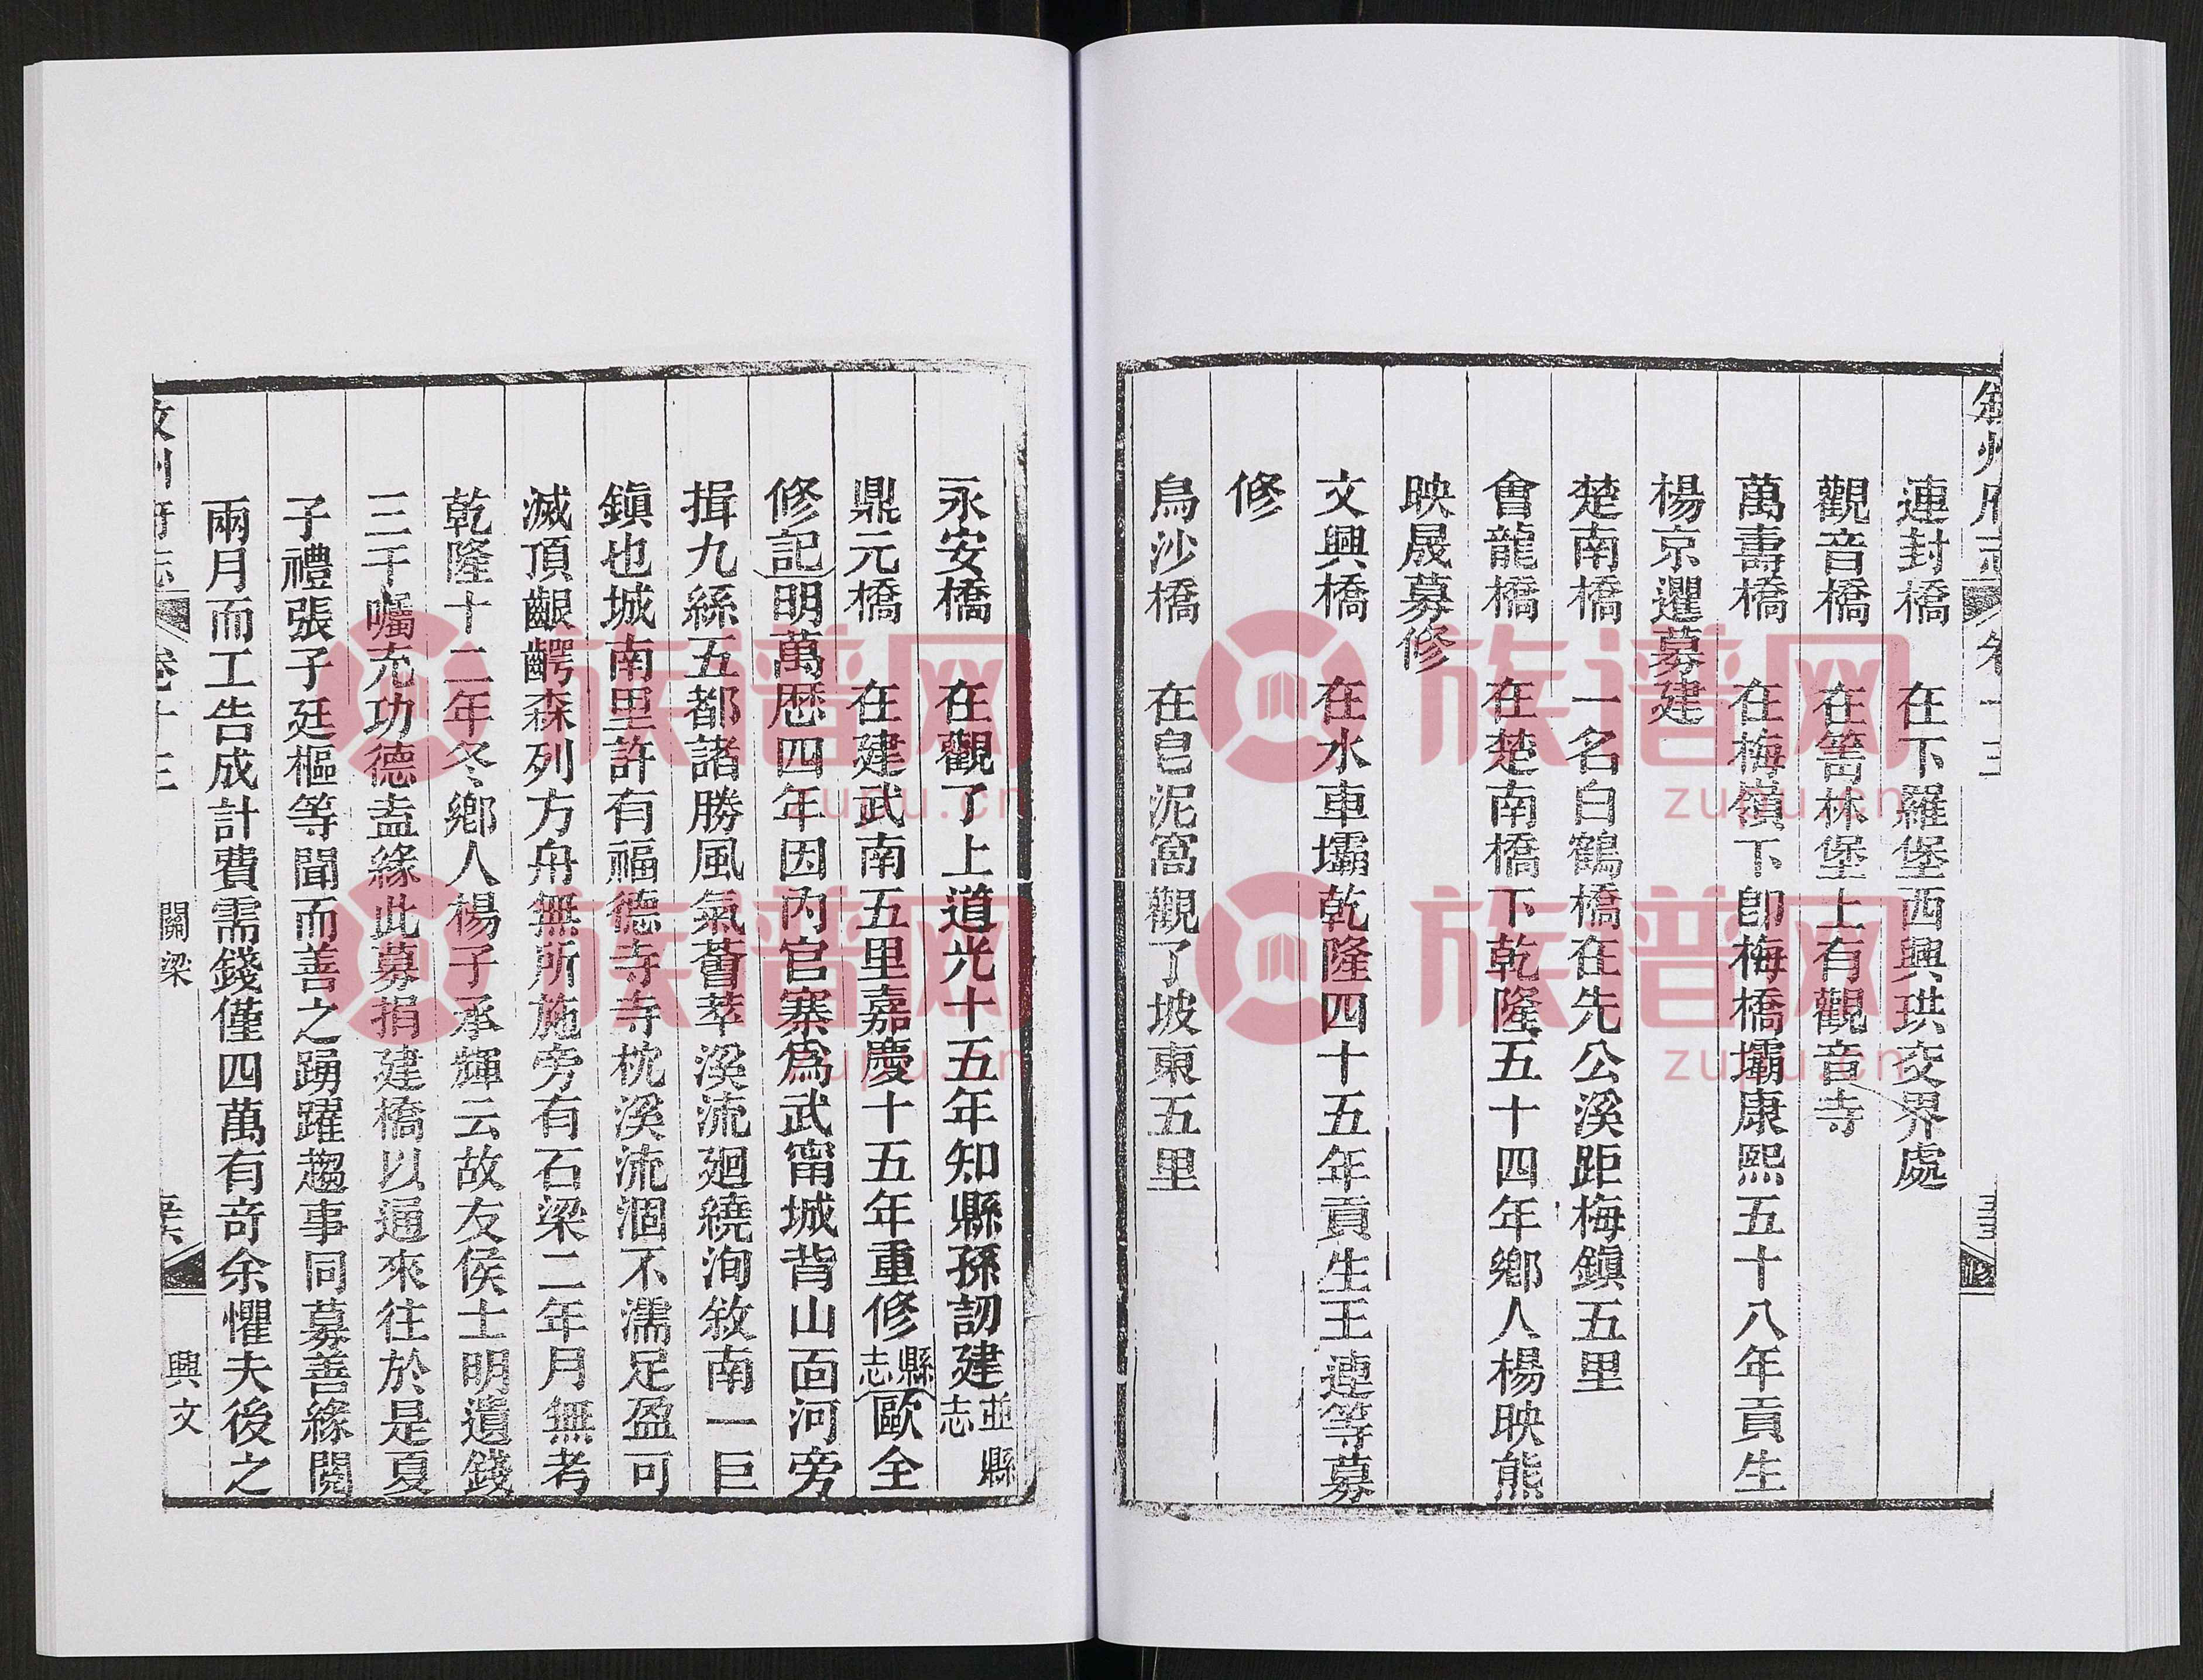 叙州府志 卷十三
連封橋 在下羅堡西興珙交界處
觀音橋 在箐林堡上有觀音寺
萬壽橋 在梅嶺下卽梅橋壩康熙五十八年貢生
楊京遷募建
楚南橋 一名白鶴橋在先公溪距梅鎭五里
會龍橋 在楚南橋下乾隆五十四年鄉人楊映熊
映晟募修
文興橋 在水車壩乾隆四十五年貢生王連等募
修
烏沙橋 在皂泥窩觀了坡東五里
永安橋 在觀了上道光十五年知縣孫訒建並縣志
鼎元橋 在建武南五里嘉慶十五年重修縣志歐全
修記明萬歴四年因內官寨爲武甯城背山面河旁
揖九絲五都諸勝風氣薈萃溪流廻繞洵敘南一巨
鎭也城南里許有福德寺寺枕溪流涸不濡足盈可
滅頂齦齶森列方舟無所施旁有石梁二年月無考
乾隆十二年冬鄉人楊子承輝云故友侯士明遺錢
三千囑充功德盍緣此募捐建橋以通來往於是夏
子禮張子廷樞等聞而善之踴躍趨事同募善緣閱
兩月而工告成計費需錢僅四萬有奇余懼夫後之
敘州府志 卷十三 關梁 興文
族谱网
zupu.cn
族谱网
zupu.cn
族谱网
zupu.cn
族谱网
zupu.cn